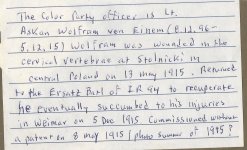 The Color Party officer is Lt.
Askan Wolfram von Einem (8.12.96-
5.12.15) Wolfram was wounded in the
cervical vertebrae at Stolnicki in
central Poland on 19 may 1915. Returned
to the Ersatz Batl of I.R 94 to recuperate
he eventually succumbed to his injuries
in Weimar on 5 Dec 1915. Commissioned without
a patent on 8 may 1915 (photo summer of 1915?